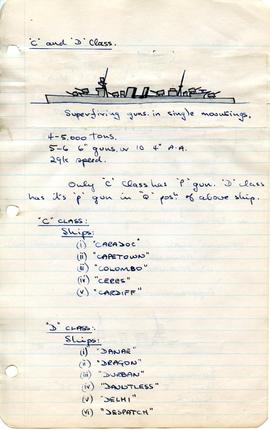 "C" and "D" Class.
Superfiring guns. in single mountings.
4-5,000 tons.
5-6 6" guns. or 10 4" A.A.
29k speed.
Only "C" Class has "P" gun. "D" class
has it's "P" gun in "Q" posn of above ship.
"C" CLASS:
Ships:
(i) "CARADOC"
(ii) "CAPETOWN"
(iii) "COLOMBO"
(iv) "CERES"
(v) "CARDIFF"
"D" CLASS:
Ships:
(i) "DANAE"
(ii) "DRAGON"
(iii) "DURBAN"
(iv) "DAUNTLESS"
(v) "DELHI"
(vi) "DESPATCH"